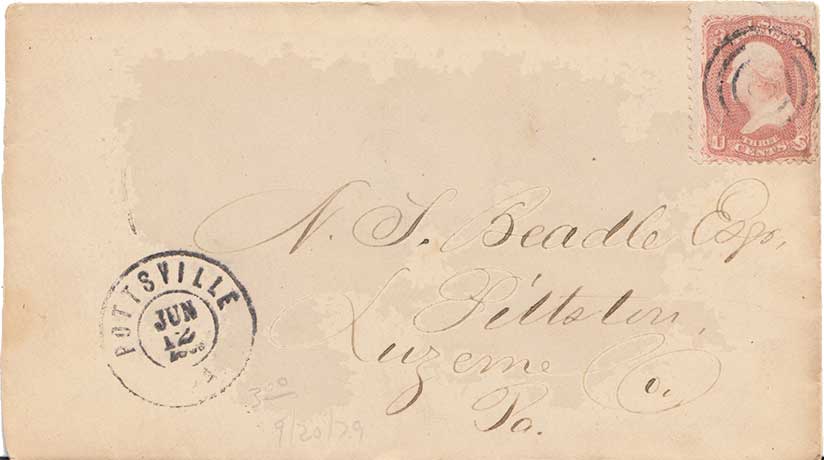 U THREE CENTS S
N. S. Beadle Esqr,
Pittston,
Luzerne Co.
Pa.
POTTSVILLE
JUN
12
3⁰⁰
9/20/79